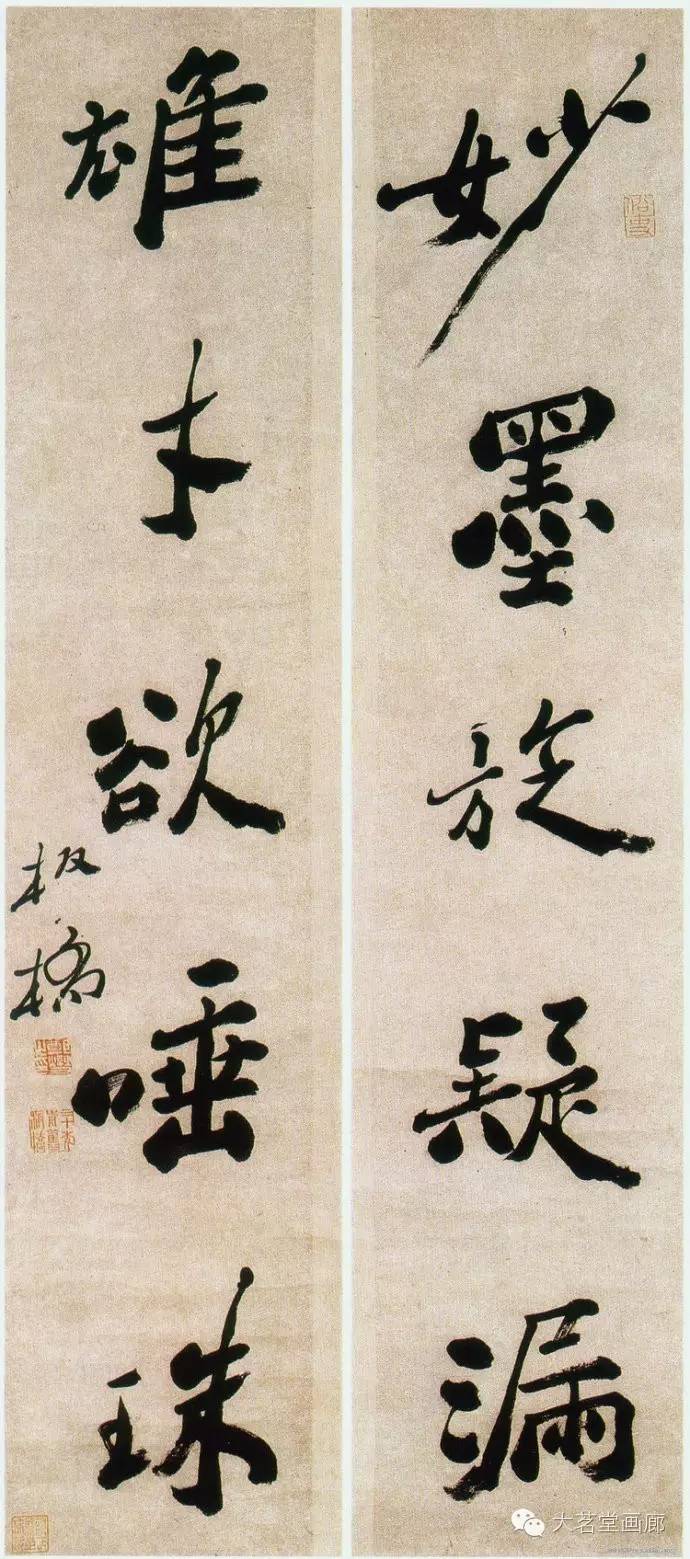 妙墨旋疑漏
雄才欲唾珠
板橋
大茗堂画廊